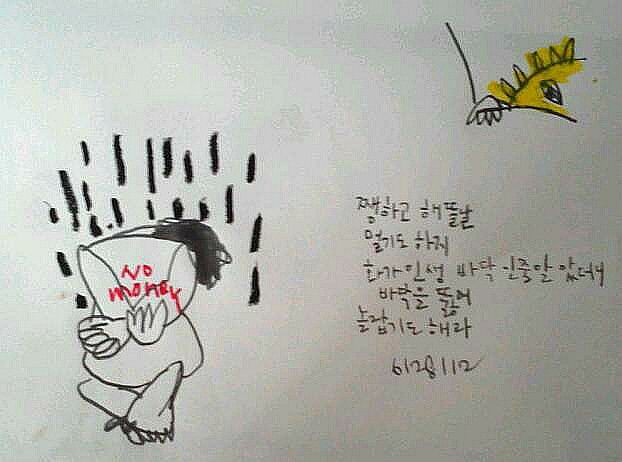 NO
MONEY
쨍하고 해뜰날
멀기도 하지
화가인생 바닥 인줄알 았더니
바닥을 뚫어
놀랍기도 해라
6/28/12